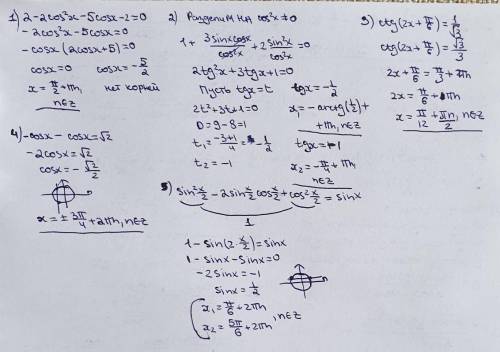 1) 2-2cos²x-5cosx-2=0
-2cos²x-5cosx=0
-cosx(2cosx+5)=0
cosx=0 cosx=-5/2
x=π/2+πn, нет корней
n∈Z
2) Разделим на cos²x≠0
1+ 3sinxcosx/cos²x +2 sin²x/cos²x =0
2tg²x+3tgx+1=0
Пусть tgx=t
2t²+3t+1=0
D=9-8=1
t₁=-3+1/4=-1/2
t₂=-1
tgx=-1/2
x₁=-arctg(1/2)+
+πn, n∈Z
tgx=-1
x₂=-π/4+πn,
n∈Z
3) ctg(2x+π/6)=1/√3
ctg(2x+π/6)=√3/3
2x+π/6=π/3+πn
2x=π/6+πn
x=π/12+πn/2, n∈Z
4) -cosx-cosx=√2
-2cosx=√2
cosx=-√2/2
x=±3π/4+2πn, n∈Z
5) sin²x/2-2sinx/2cosx/2+cos²x/2=sinx
1
1-sin(2·x/2)=sinx
1-sinx-sinx=0
-2sinx=-1
sinx=1/2
x₁=π/6+2πn
x₂=5π/6+2πn, n∈Z